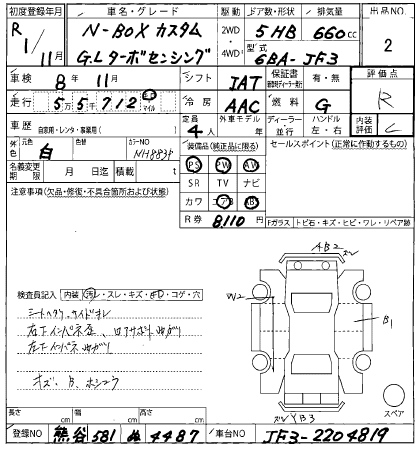 初度登録年月 車名・グレード 駆動 ドア数・形状 排気量 出品NO
R1/11月 N-BOX カスタム 2WD・4WD 5HB 660cc 2
G・Lターボセンシング 型式 6BA-JF3
車検 8年 11月 シフト IAT 保証書 有・無 評価点
走行 5万5千712 km マイル 冷房 AAC 燃料 G R
車歴 自家用・レンタ・事業用( ) 定員 4人 外車モデル 年 ディーラー・並行 ハンドル 左・右 内装評価 C
外色 元色 白 色替 カラーNO NH883P 装備品(純正品に限る) セールスポイント(正常に作動するもの)
名義変更期限 月 日迄 積載 t PS PW AW
注意事項(欠品・修復・不具合箇所および状態) SR TV ナビ
カワ エアB ABS
R券 8,110円 Fガラス トビ石・キズ・ヒビ・ワレ・リペア跡
AB2
検査員記入 内装(汚レ・スレ・キズ・コゲ・穴 W2
B1
右下インパネ
左下インパネ
キズ、B
B3 スペア
長さ cm 幅 cm 高さ cm
登録NO 熊谷 581 ぬ 4487 車台NO JF3-2204819